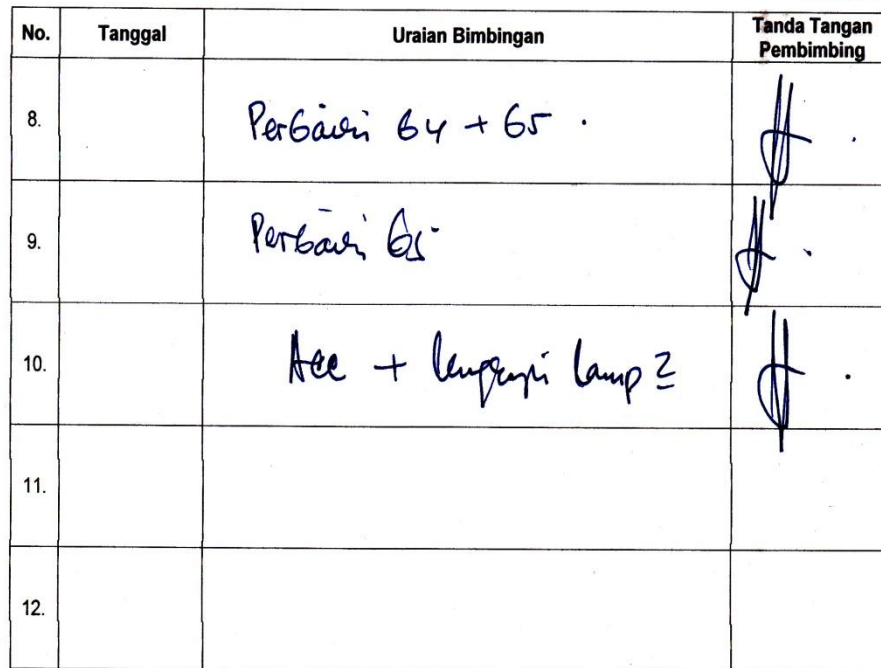 No. Tanggal Uraian Bimbingan Tanda Tangan Pembimbing
8. Perbaiki b4 + b5 .
9. Perbaiki b5
10. Acc + lengkapi lamp2
11.
12.